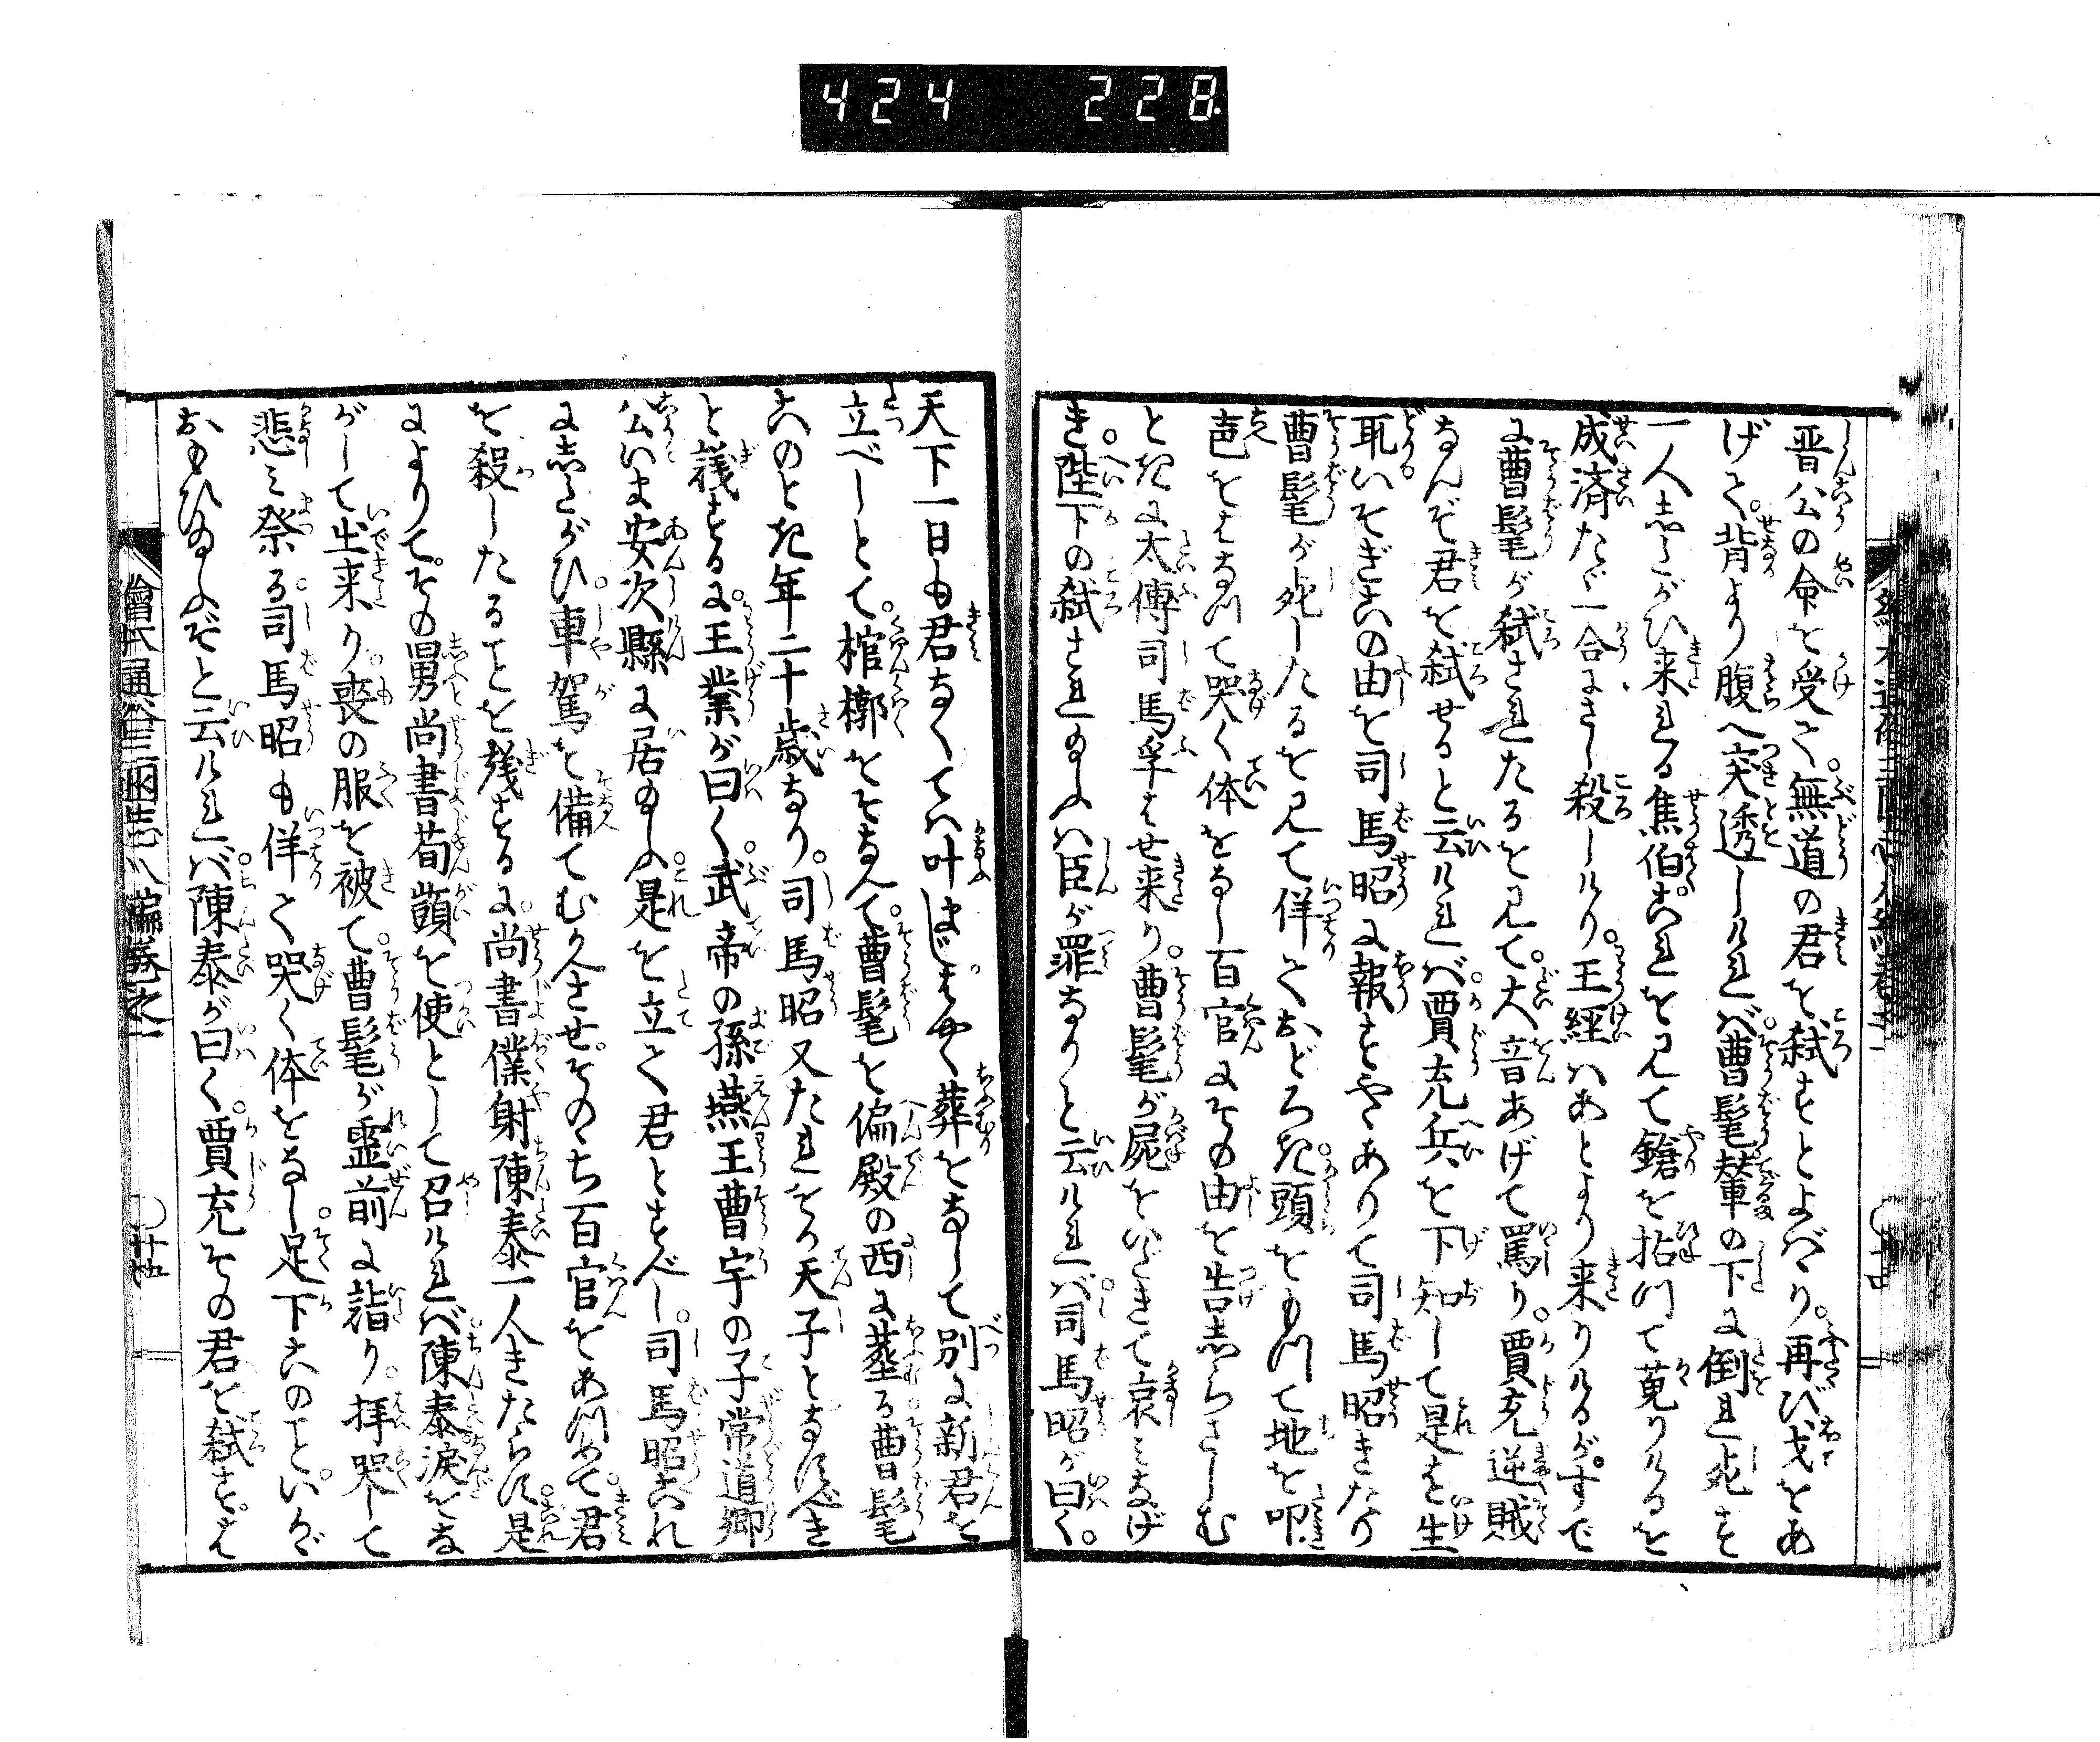 424 228.
晋公の命を受て。無道の君を弑すとよばゝり。再び戈をあ
げて。背より腹へ突透しければ。曹髦輦の下に倒れ死す
一人したがひ来れる焦伯これを見て鎗を拈つて蒐りけるを
成済たゞ一合にさし殺しけり。王經はあとより来りけるが。すで
に曹髦が弑されたるを見て。大音あげて罵り。賈充逆賊
なんぞ君を弑せると云ければ。賈充兵を下知して是を生
どり。
耻いそぎこの由を司馬昭に報ずやゝありて司馬昭きたり
曹髦が死したるを見て佯ておどろき。頭をもつて地を叩き
声をはなつて哭く体をなし百官にその由を告しらさしむ
ときに太傅司馬孚はせ来り。曹髦が屍をいだきて哀みなげ
き。陛下の弑され玉ふは臣が罪なりと云ければ。司馬昭が曰く。
天下一日も君なくては叶はじはやく葬をなして別に新君を
立べしとて。棺槨をそなへて。曹髦を偏殿の西に葬る。曹髦
このとき年二十歳なり。司馬昭又たれをか天子となすべき
と議するに。王業が曰く。武帝の孫燕王曹宇の子常道郷
公いま安次縣に居玉ふ。是を立て君とすべし。司馬昭これ
にしたがひ。車駕を備てむかへさせ。そのゝち百官をあつめて。君
を殺したることを議するに。尚書僕射陳泰一人きたらず。是
によりて。その舅尚書荀顗を使として召ければ。陳泰涙をな
がして出来り。喪の服を被て。曹髦が霊前に詣り。拝哭して
悲み祭る。司馬昭も佯て哭く体をなし。足下このこといかゞ
おもひ玉ふぞと云ければ。陳泰が曰く。賈充その君を弑す。は
繪本通俗三國志八編巻之一